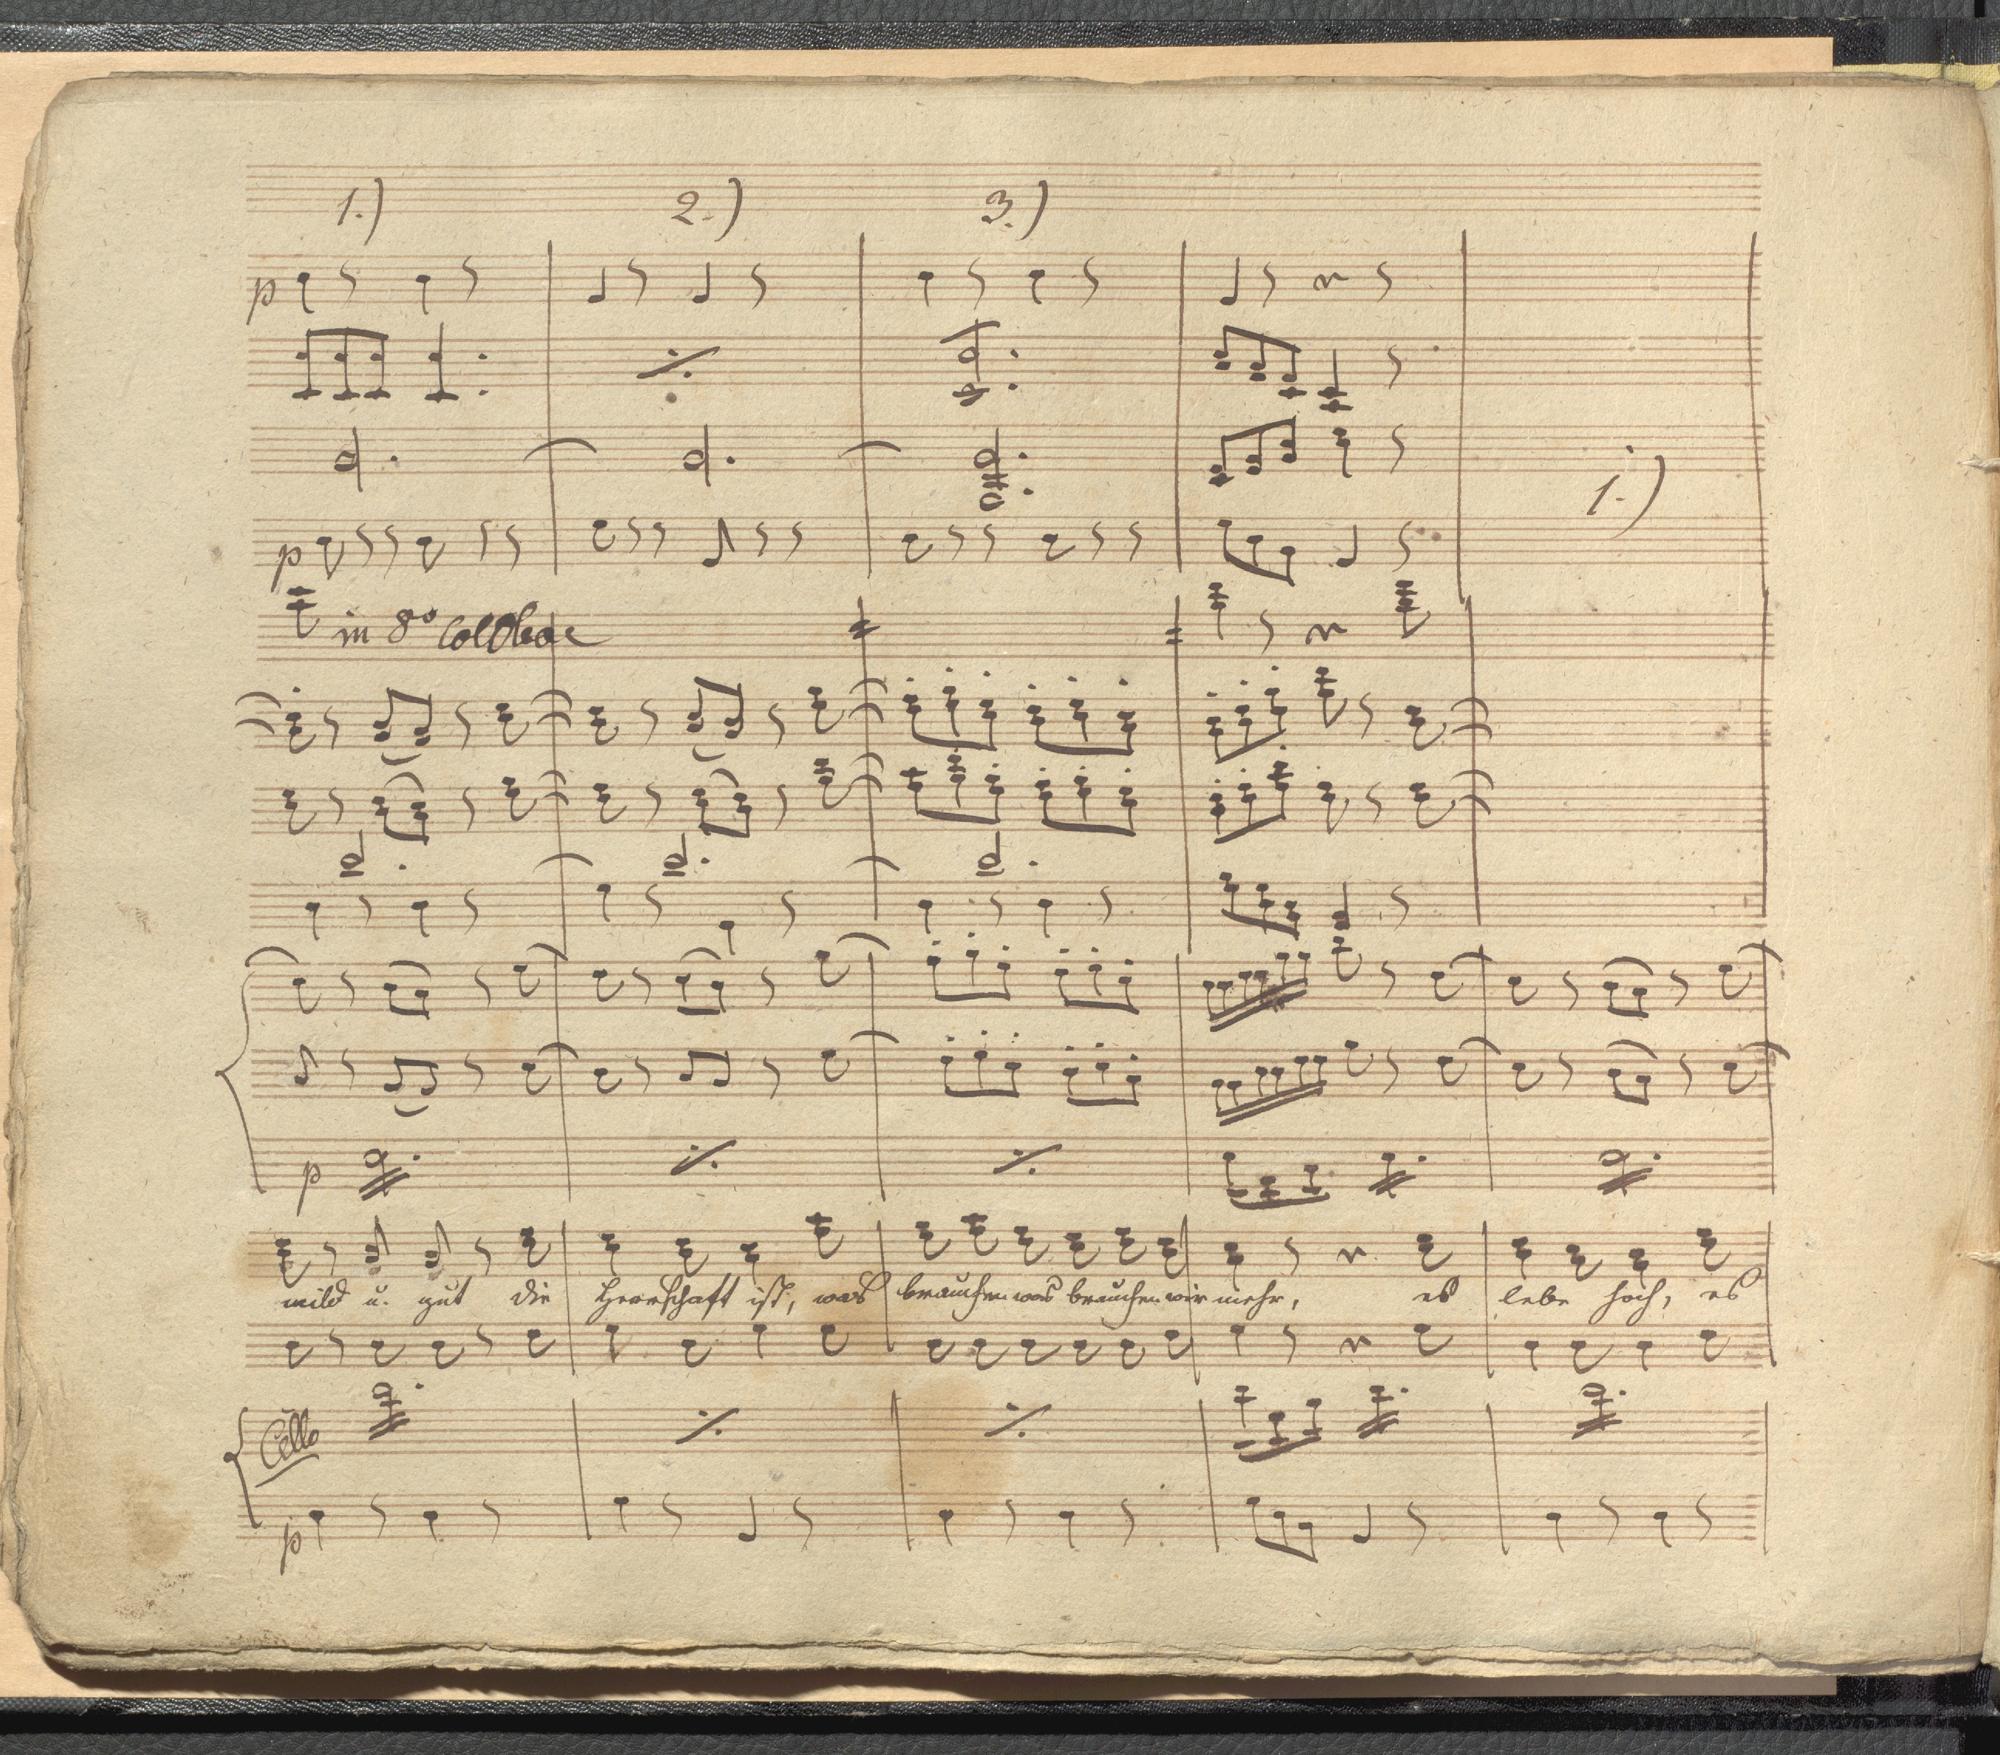 1.) 2.) 3.)
p
1.)
p
in 8vo Col Oboe
p
mild u. gut die Herrschaft ist, was brauchen was brauchen wir mehr, es lebe hoch, es
Cello
p